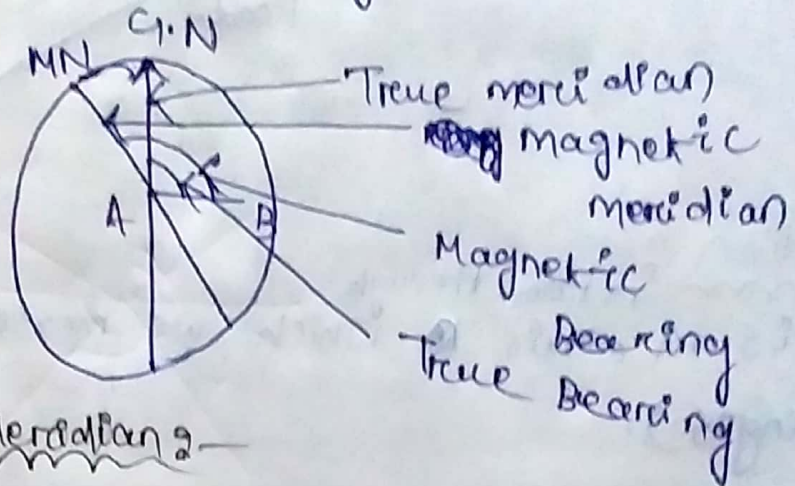 G.N
MN
True meridian
magnetic
meridian
A
B
Magnetic
Bearing
True Bearing
Meridian :-